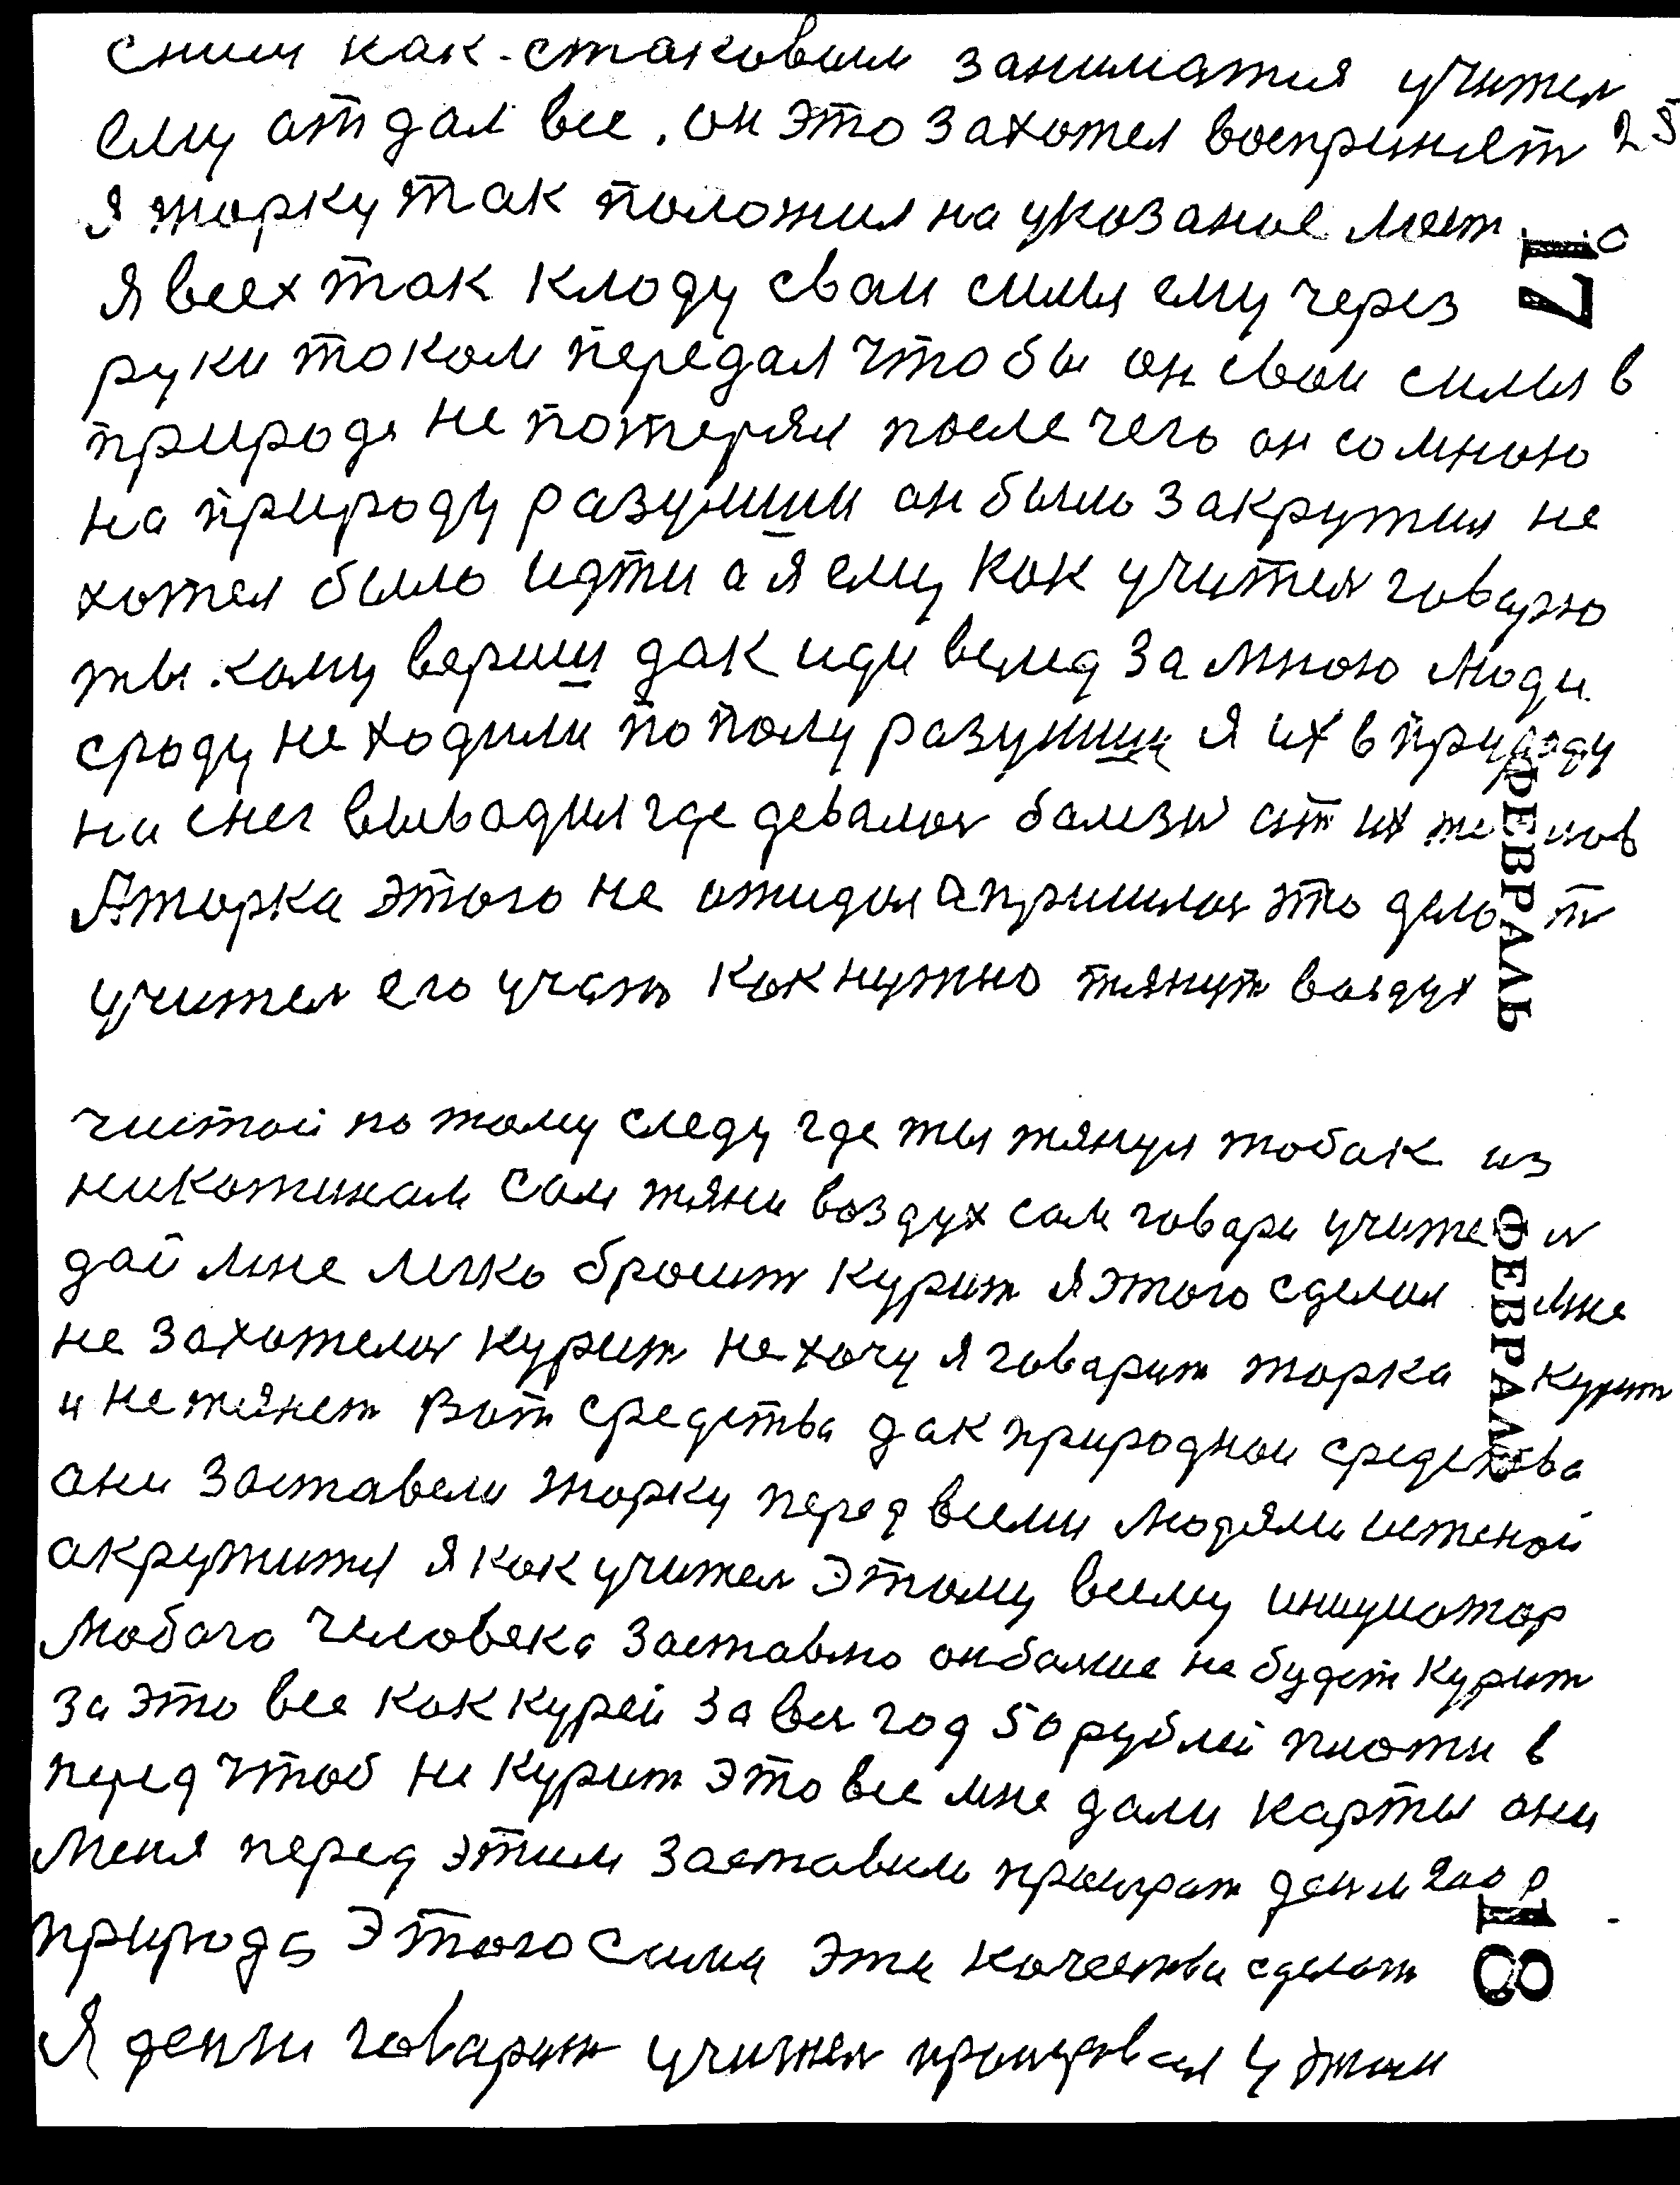 сним как стаковым заниматся учител
ему отдал все. он это захотел воспринят 25
я жорку так положил на указаное мест о
17
я всех так кладу сваи силы ему через
руки током передал чтобы он сваи силы в
природе не потерял после чего он со мною
на природу разумши он было закрутил не
хотел было идти а я ему как учител говарю
ты кому вериш дак иди вслед за мною люди
сроду не ходили по полу разумши я их в природу
на снег вывадил где девалос болезн от их
ФЕВРАЛЬ
А жорка этого не ожидал а пришлос это дела т
учител его учат как нужно тянут воздух
чистой по тому следу где ты тянул тобак из
никотинам сам тяни воздух сам говари учите л
дай мне легко бросит курит я этого сделал мне
не захотелос курит не хочу я говарит жорка курит
и не тянет Вот средства дак природнои средства
ФЕВРАЛЬ
они заставели жорку перед всеми людями истеной
акружится я как учител этому всему инициатор
любого человека заставлю он болше не будет курит
за это все как курей за вес год 50 рублей плоти в
перед чтоб не курит это все мне дали карты они
меня перед этим заставили проиграт денги 200 р
18
природа этого сама эти качества сделат
Я денги говарит учител проиграв сел у